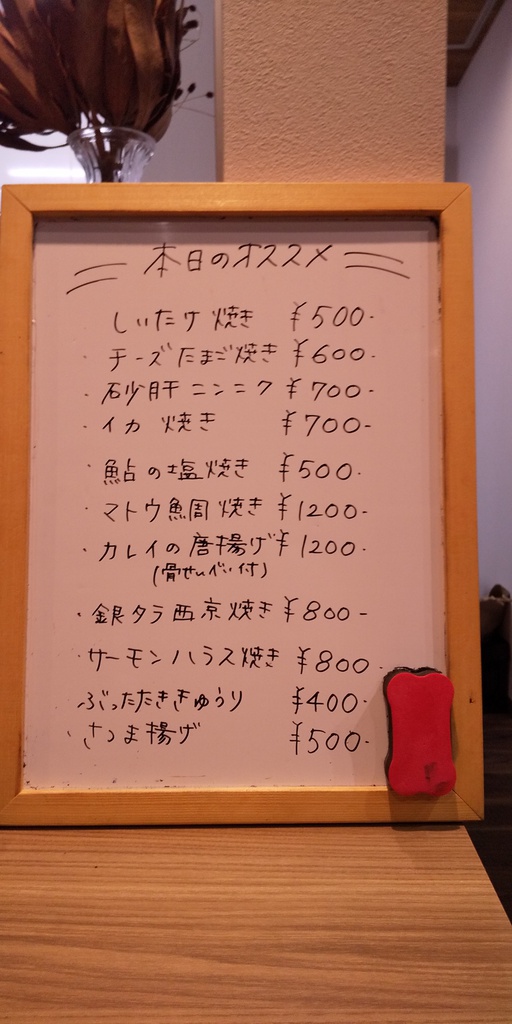 本日のオススメ
しいたけ焼き ¥500-
・チーズたまご焼き ¥600-
・砂肝ニンニク ¥700-
・イカ焼き ¥700-
・鮎の塩焼き ¥500-
・マトウ鯛焼き ¥1200-
・カレイの唐揚げ ¥1200-
(骨せんべい付)
・銀タラ西京焼き ¥800-
・サーモンハラス焼き ¥800-
ぶったたききゅうり ¥400-
・さつま揚げ ¥500-